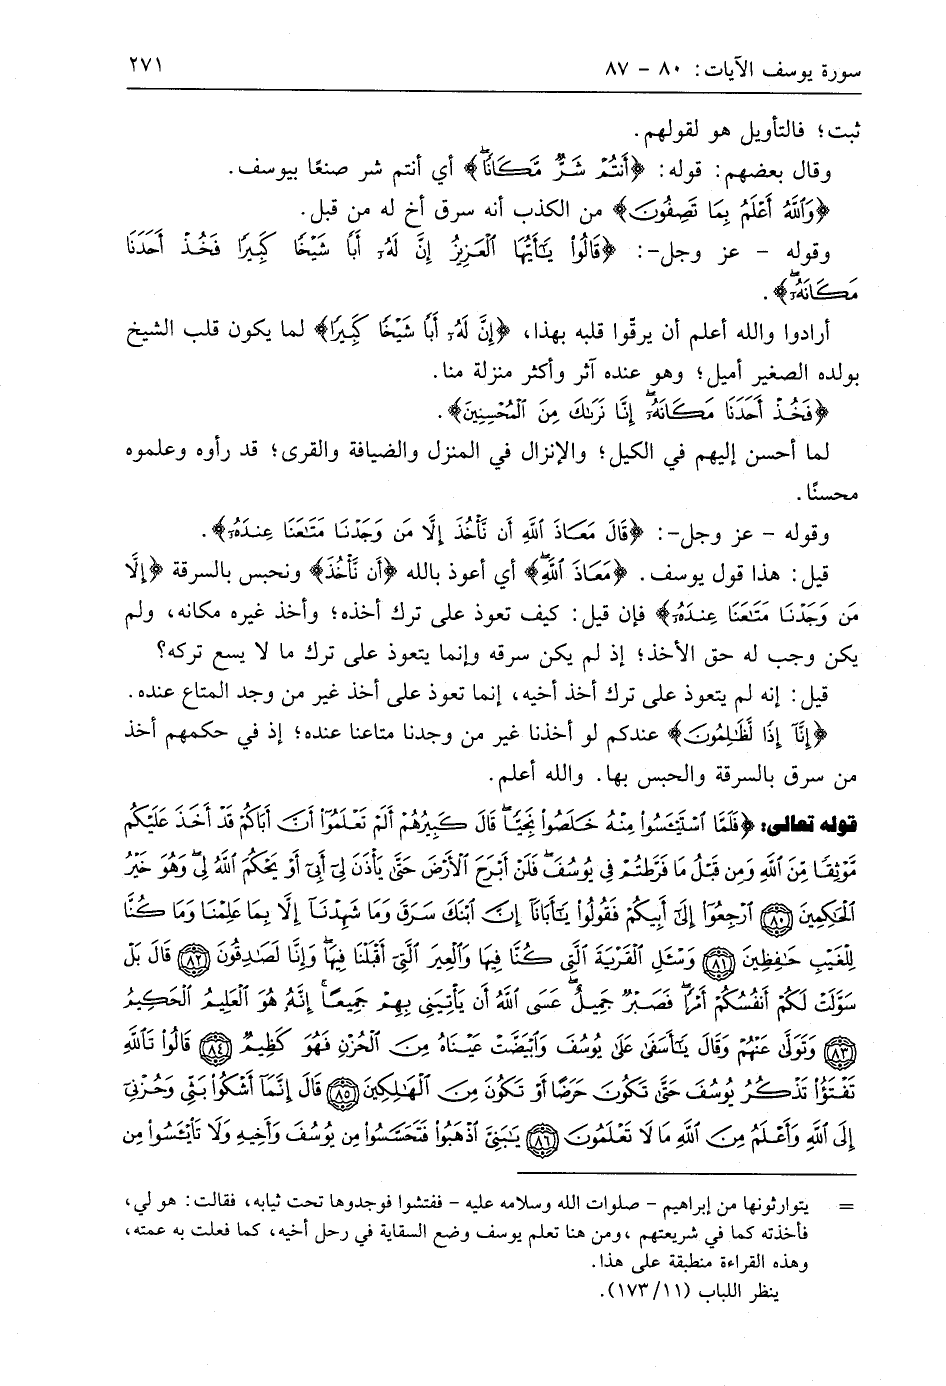 سورة يوسف الآيات: ٨٠ - ٨٧ ٢٧١
ثبت؛ فالتأويل هو لقولهم.
وقال بعضهم: قوله: ﴿أَنتُمْ شَرٌّ مَّكَانًا﴾ أي أنتم شر صنعًا بيوسف.
﴿وَاللَّهُ أَعْلَمُ بِمَا تَصِفُونَ﴾ من الكذب أنه سرق أخ له من قبل.
وقوله - عز وجل-: ﴿قَالُوا يَـٰٓأَيُّهَا الْعَزِيزُ إِنَّ لَهُۥٓ أَبًا شَيْخًا كَبِيرًا فَخُذْ أَحَدَنَا
مَكَانَهُۥٓ﴾.
أرادوا والله أعلم أن يرقّوا قلبه بهذا، ﴿إِنَّ لَهُۥٓ أَبًا شَيْخًا كَبِيرًا﴾ لما يكون قلب الشيخ
بولده الصغير أميل؛ وهو عنده آثر وأكثر منزلة منا.
﴿فَخُذْ أَحَدَنَا مَكَانَهُۥٓ إِنَّا نَرَىٰكَ مِنَ الْمُحْسِنِينَ﴾.
لما أحسن إليهم في الكيل؛ والإنزال في المنزل والضيافة والقرى؛ قد رأوه وعلموه
محسنًا.
وقوله - عز وجل-: ﴿قَالَ مَعَاذَ اللَّهِ أَن نَّأْخُذَ إِلَّا مَن وَجَدْنَا مَتَـٰعَنَا عِندَهُۥٓ﴾.
قيل: هذا قول يوسف. ﴿مَعَاذَ اللَّهِ﴾ أي أعوذ بالله ﴿أَن نَّأْخُذَ﴾ ونحبس بالسرقة ﴿إِلَّا
مَن وَجَدْنَا مَتَـٰعَنَا عِندَهُۥٓ﴾ فإن قيل: كيف تعوذ على ترك أخذه؛ وأخذ غيره مكانه، ولم
يكن وجب له حق الأخذ؛ إذ لم يكن سرقه وإنما يتعوذ على ترك ما لا يسع تركه؟
قيل: إنه لم يتعوذ على ترك أخذ أخيه، إنما تعوذ على أخذ غير من وجد المتاع عنده.
﴿إِنَّآ إِذًا لَّظَـٰلِمُونَ﴾ عندكم لو أخذنا غير من وجدنا متاعنا عنده؛ إذ في حكمهم أخذ
من سرق بالسرقة والحبس بها. والله أعلم.
قوله تعالى: ﴿فَلَمَّا اسْتَيْـَٔسُوا مِنْهُ خَلَصُوا نَجِيًّا قَالَ كَبِيرُهُمْ أَلَمْ تَعْلَمُوٓا أَنَّ أَبَاكُمْ قَدْ أَخَذَ عَلَيْكُم
مَّوْثِقًا مِّنَ اللَّهِ وَمِن قَبْلُ مَا فَرَّطتُمْ فِي يُوسُفَ فَلَنْ أَبْرَحَ الْأَرْضَ حَتَّىٰ يَأْذَنَ لِيٓ أَبِيٓ أَوْ يَحْكُمَ اللَّهُ لِي وَهُوَ خَيْرُ
الْحَـٰكِمِينَ ﴿٨٠﴾ ارْجِعُوٓا إِلَىٰٓ أَبِيكُمْ فَقُولُوا يَـٰٓأَبَانَآ إِنَّ ابْنَكَ سَرَقَ وَمَا شَهِدْنَآ إِلَّا بِمَا عَلِمْنَا وَمَا كُنَّا
لِلْغَيْبِ حَـٰفِظِينَ ﴿٨١﴾ وَسْـَٔلِ الْقَرْيَةَ الَّتِي كُنَّا فِيهَا وَالْعِيرَ الَّتِيٓ أَقْبَلْنَا فِيهَا وَإِنَّا لَصَـٰدِقُونَ ﴿٨٢﴾ قَالَ بَلْ
سَوَّلَتْ لَكُمْ أَنفُسُكُمْ أَمْرًا فَصَبْرٌ جَمِيلٌ عَسَى اللَّهُ أَن يَأْتِيَنِي بِهِمْ جَمِيعًا إِنَّهُۥ هُوَ الْعَلِيمُ الْحَكِيمُ
﴿٨٣﴾ وَتَوَلَّىٰ عَنْهُمْ وَقَالَ يَـٰٓأَسَفَىٰ عَلَىٰ يُوسُفَ وَابْيَضَّتْ عَيْنَاهُ مِنَ الْحُزْنِ فَهُوَ كَظِيمٌ ﴿٨٤﴾ قَالُوا تَاللَّهِ
تَفْتَؤُا تَذْكُرُ يُوسُفَ حَتَّىٰ تَكُونَ حَرَضًا أَوْ تَكُونَ مِنَ الْهَـٰلِكِينَ ﴿٨٥﴾ قَالَ إِنَّمَآ أَشْكُوا بَثِّي وَحُزْنِيٓ
إِلَى اللَّهِ وَأَعْلَمُ مِنَ اللَّهِ مَا لَا تَعْلَمُونَ ﴿٨٦﴾ يَـٰبَنِيَّ اذْهَبُوا فَتَحَسَّسُوا مِن يُوسُفَ وَأَخِيهِ وَلَا تَا۟يْـَٔسُوا مِن
= يتوارثونها من إبراهيم - صلوات الله وسلامه عليه - ففتشوا فوجدوها تحت ثيابه، فقالت: هو لي،
فأخذته كما في شريعتهم ،ومن هنا تعلم يوسف وضع السقاية في رحل أخيه، كما فعلت به عمته،
وهذه القراءة منطبقة على هذا.
ينظر اللباب (١١/ ١٧٣).